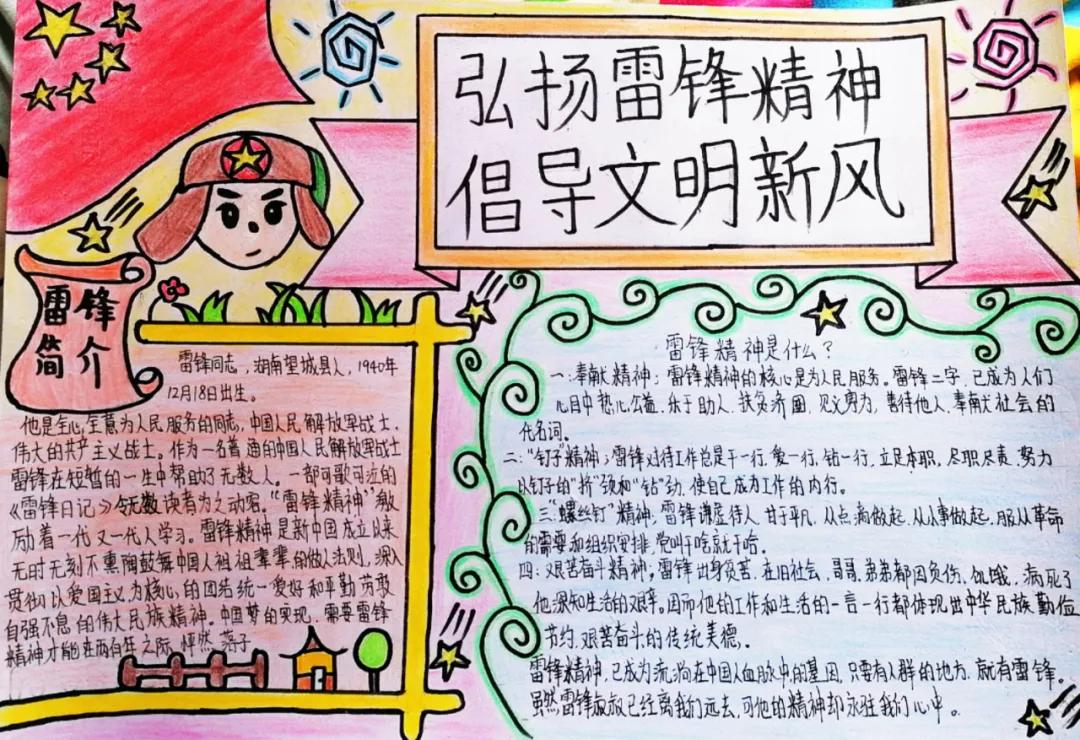 弘扬雷锋精神
倡导文明新风
雷锋
简介
雷锋同志,湖南望城县人,1940年
12月18日出生。
他是全心全意为人民服务的同志,中国人民解放军战士,
伟大的共产主义战士。作为一名普通的中国人民解放军战士
雷锋在短暂的一生中帮助了无数人。一部可歌可泣的
《雷锋日记》令无数读者为之动容。“雷锋精神”激
励着一代又一代人学习。雷锋精神是新中国成立以来
无时无刻不熏陶鼓舞中国人祖祖辈辈的做人法则,深入
贯彻以爱国主义为核心,的团结统一爱好和平勤劳勇敢
自强不息的伟大民族精神。中国梦的实现,需要雷锋
精神才能在两百年之际,怦然
雷锋精神是什么?
一:奉献精神;雷锋精神的核心是为人民服务。雷锋二字,已成为人们
心目中热心公益,乐于助人,扶贫济困,见义勇为,善待他人,奉献社会的
代名词。
二:“钉子”精神;雷锋对待工作总是干一行,爱一行,钻一行,立足本职,尽职尽责,努力
以钉子的“挤”颈和“钻”劲,使自己成为工作的内行。
三“螺丝钉”精神;雷锋谦虚待人,甘于平凡,从点滴做起,从从事做起,服从革命
的需要和组织安排,党叫干啥就干啥.
四:艰苦奋斗精神;雷锋出身贫苦,在旧社会,哥哥,弟弟都因负伤、饥饿,病死了
他深知生活的艰辛,因而他的工作和生活的一言一行都体现出中华民族勤俭
节约,艰苦奋斗的传统美德,
雷锋精神,已成为流淌在中国人血脉中的基因,只要有人群的地方,就有雷锋。
虽然雷锋叔叔已经离我们远去,可他的精神却永驻我们心中。